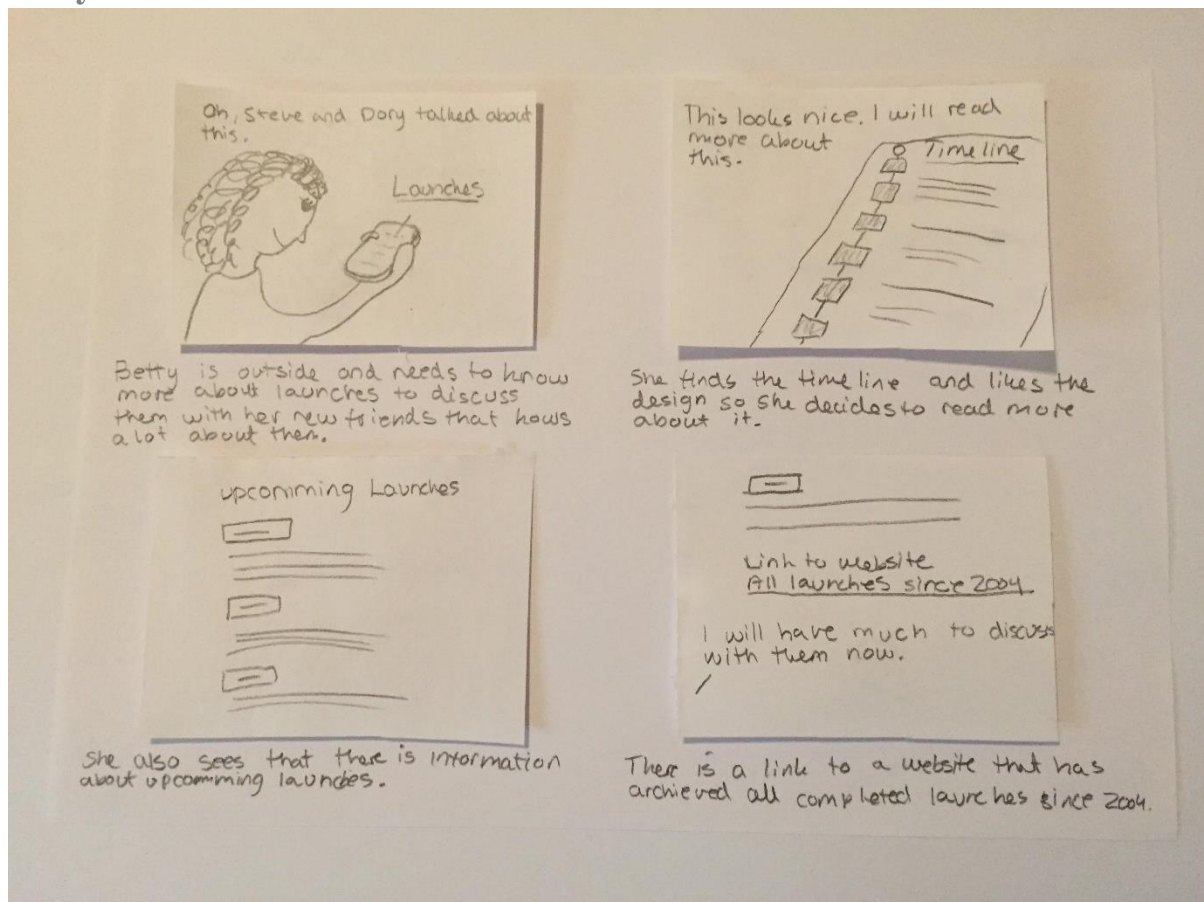 Oh, Steve and Dory talked about
this.
Launches
Betty is outside and needs to know
more about launches to discuss
them with her new friends that hows
a lot about them.
This looks nice. I will read
more about
this.
Timeline
She finds the timeline and likes the
design so she decides to read more
about it.
upcomming Launches
She also sees that there is information
about upcomming launches.
Link to website
All launches since 2004
I will have much to discuss
with them now.
There is a link to a website that has
archieved all completed launches since 2004.